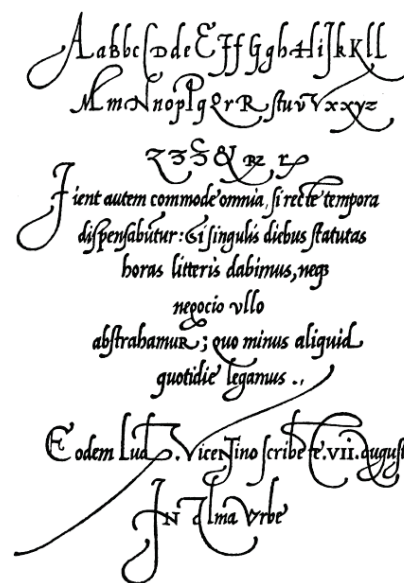 AabBbcCDdeEFfGghHiJkKll
MmNnopPqQrRſtuvVxxyz
& Rz rſ
Fient autem commode omnia, ſi recte tempora
diſpenſabutur: & ſi ſingulis diebus ſtatutas
horas litteris dabimus, neqȝ
negocio vllo
abſtrahamuR; quo minus aliquid
quotidie legamus .,
Eodem Lud. Vicentino ſcribente. VII. auguſti
IN Alma Vrbe